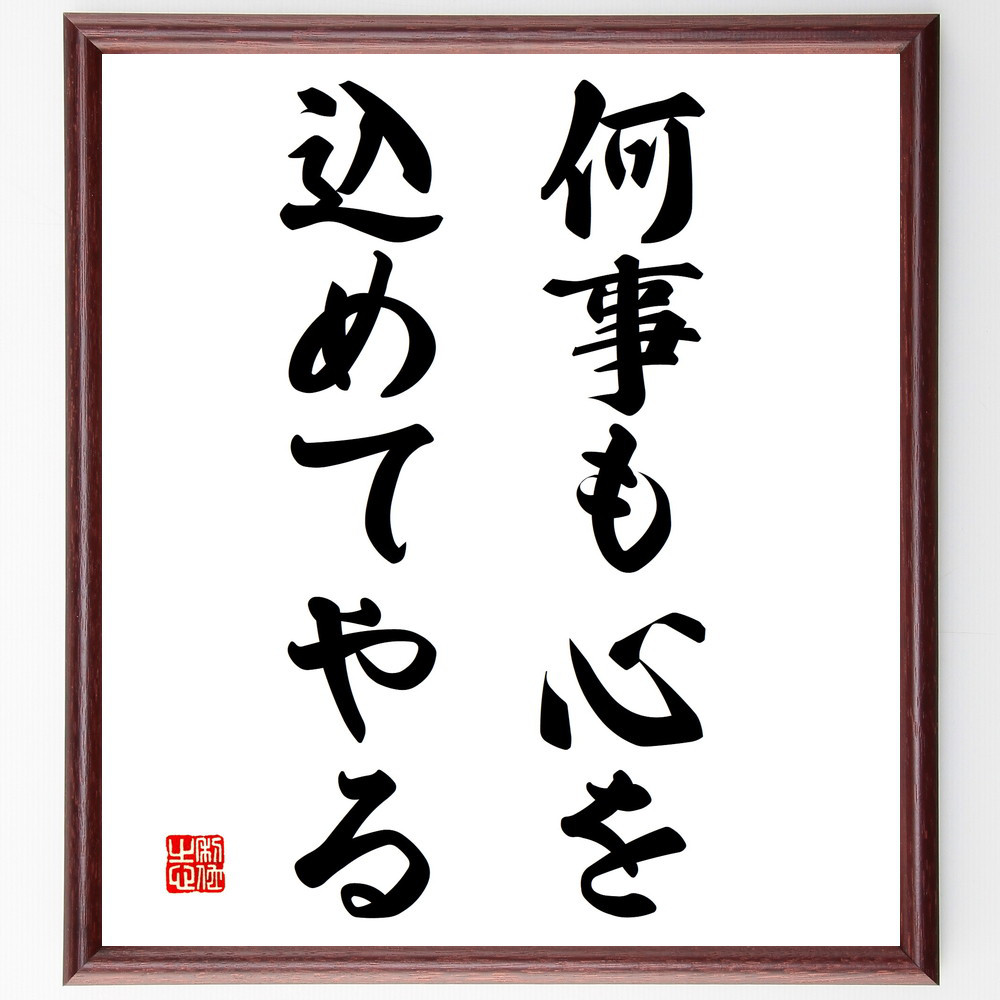 何事も心を
込めてやる